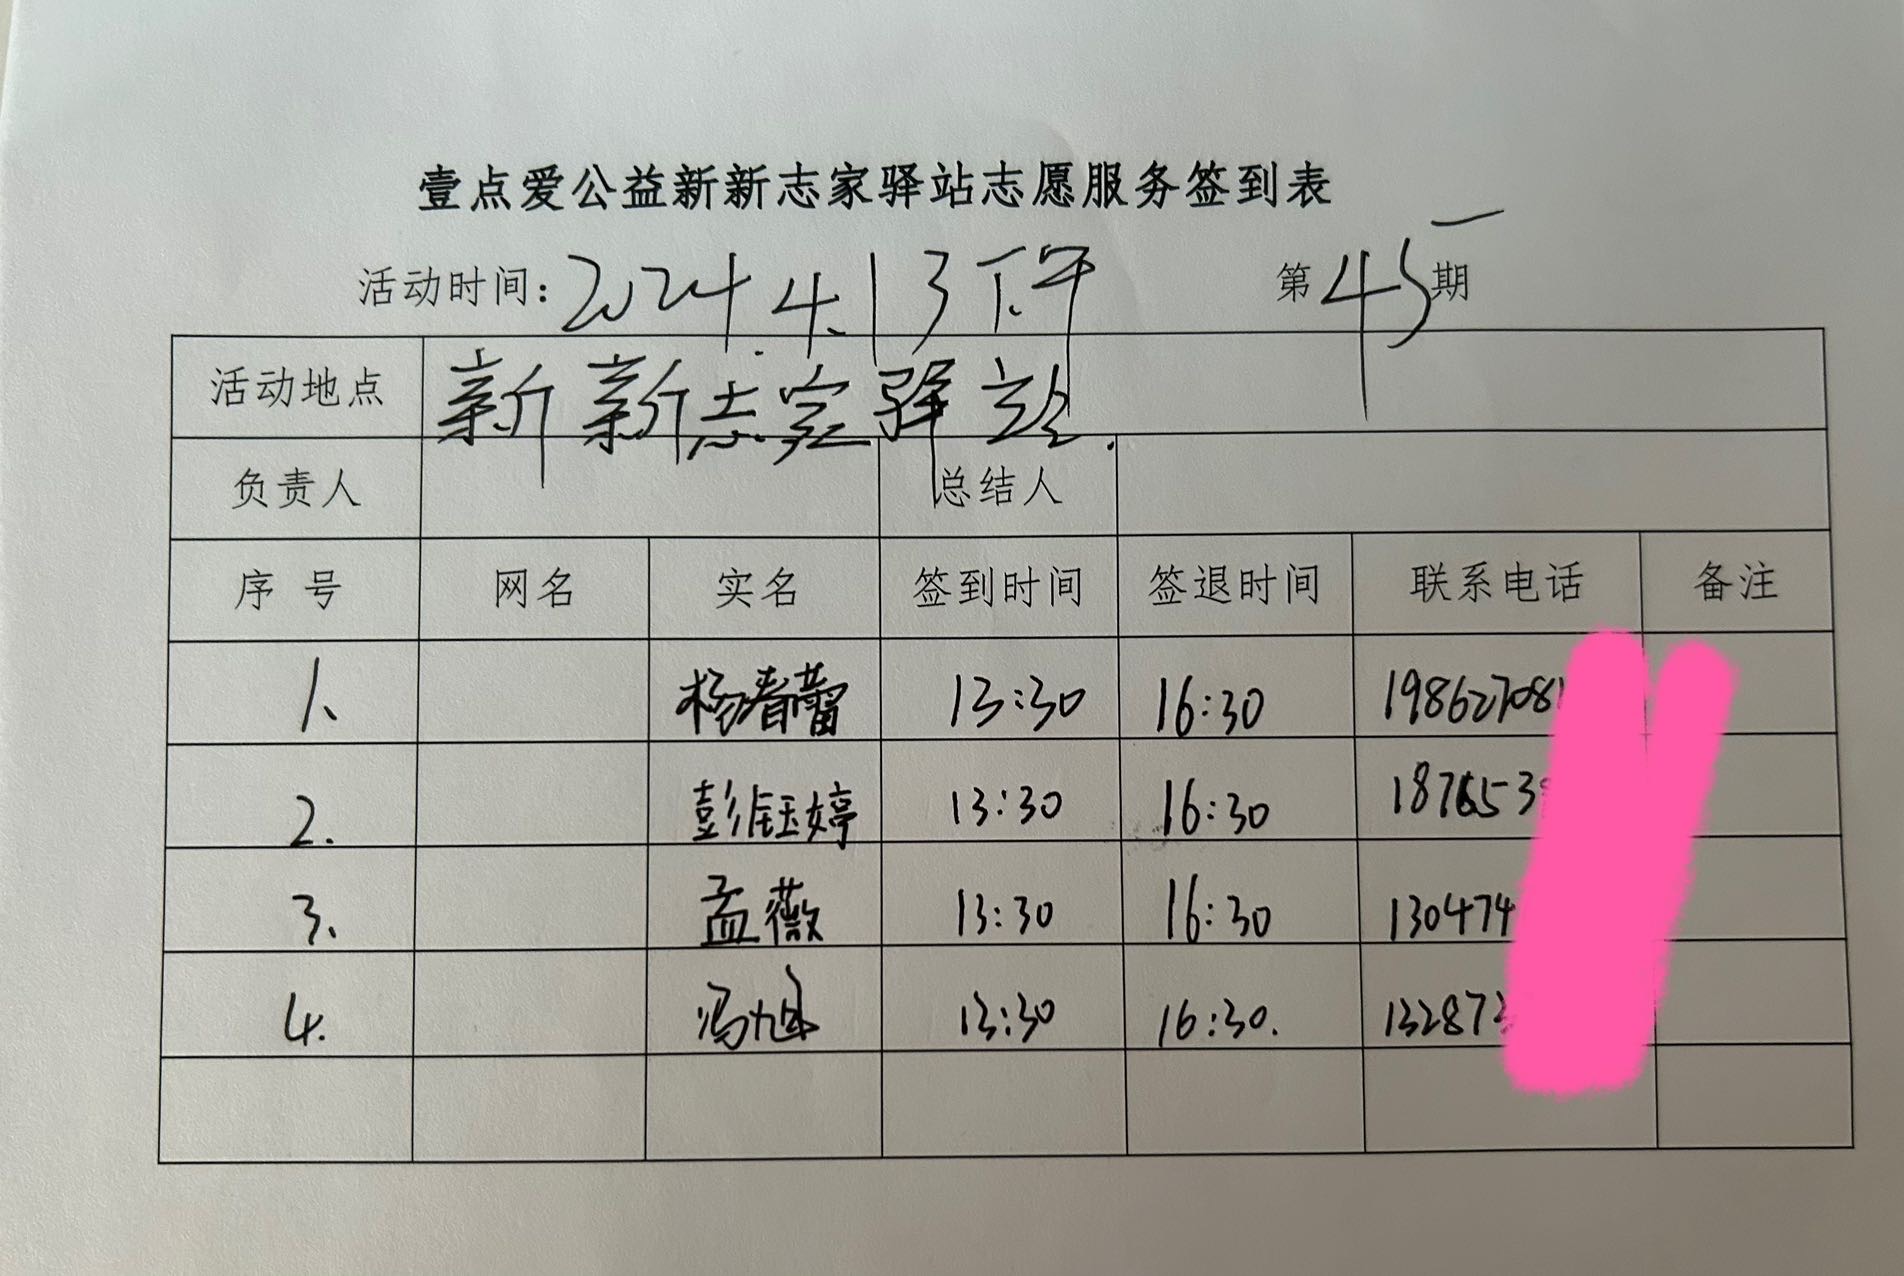 壹点爱公益新新志家驿站志愿服务签到表
活动时间: 2024.4.13下午 第45期
活动地点 新新志家驿站.
负责人 总结人
序号 网名 实名 签到时间 签退时间 联系电话 备注
1、 杨春蕾 13:30 16:30 198627081
2. 彭钰婷 13:30 16:30 187653
3、 孟薇 13:30 16:30 130474
4. 冯旭 13:30 16:30. 132873